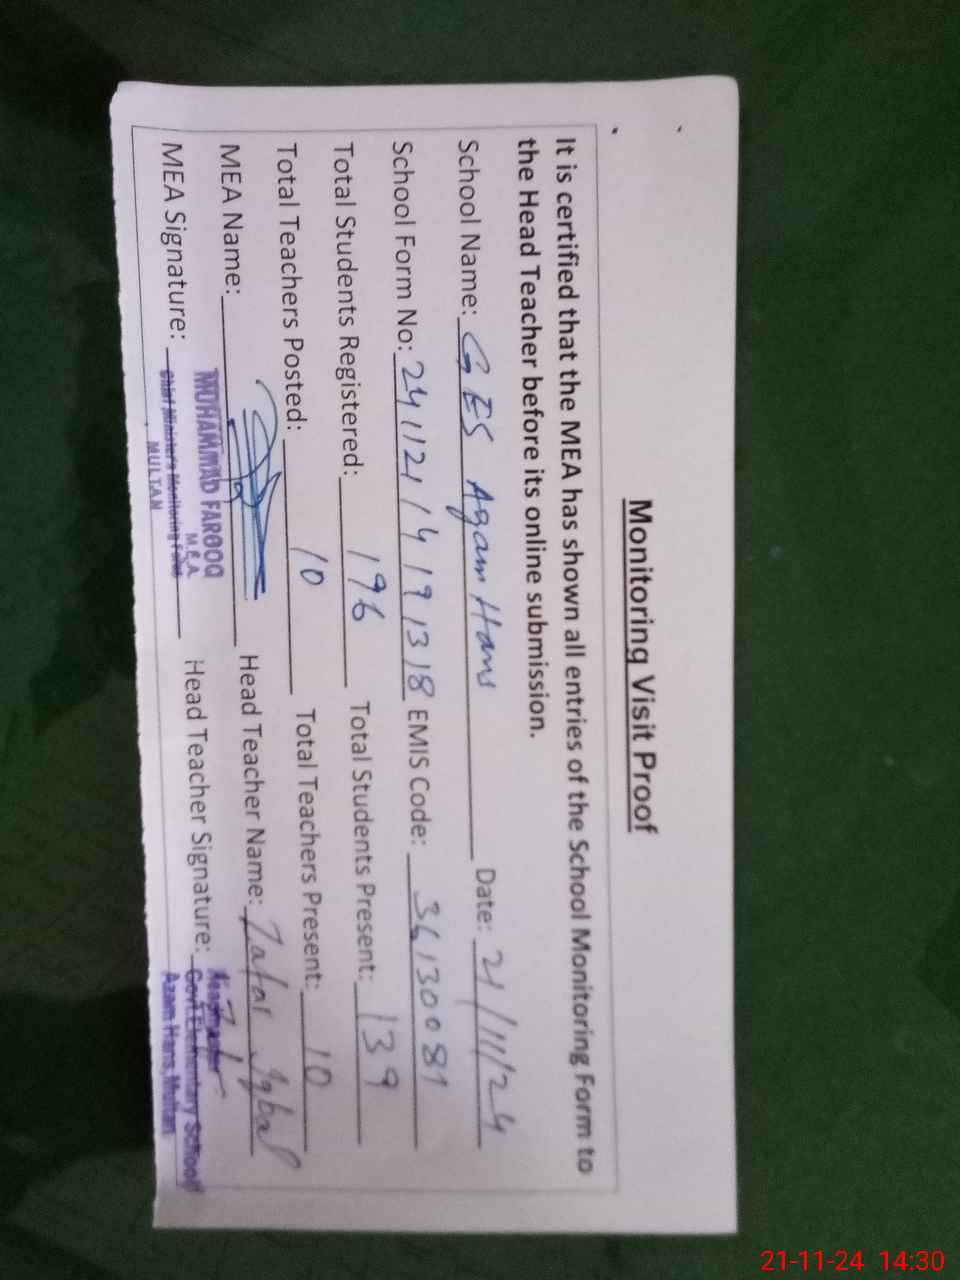 Monitoring Visit Proof
It is certified that the MEA has shown all entries of the School Monitoring Form to
the Head Teacher before its online submission.
School Name: GES Azam Hans Date: 21/11/24
School Form No: 24112114191318 EMIS Code: 36130081
Total Students Registered: 196 Total Students Present: 139
Total Teachers Posted: 10 Total Teachers Present: 10
MEA Name: Head Teacher Name: Zafar Iqbal
MEA Signature: Head Teacher Signature:
MUHAMMAD FAROOQ
M.E.A.
Chief Minister's Monitoring Force
MULTAN
Headmaster
Govt Elementary School
Azam Hans, Multan
21-11-24 14:30